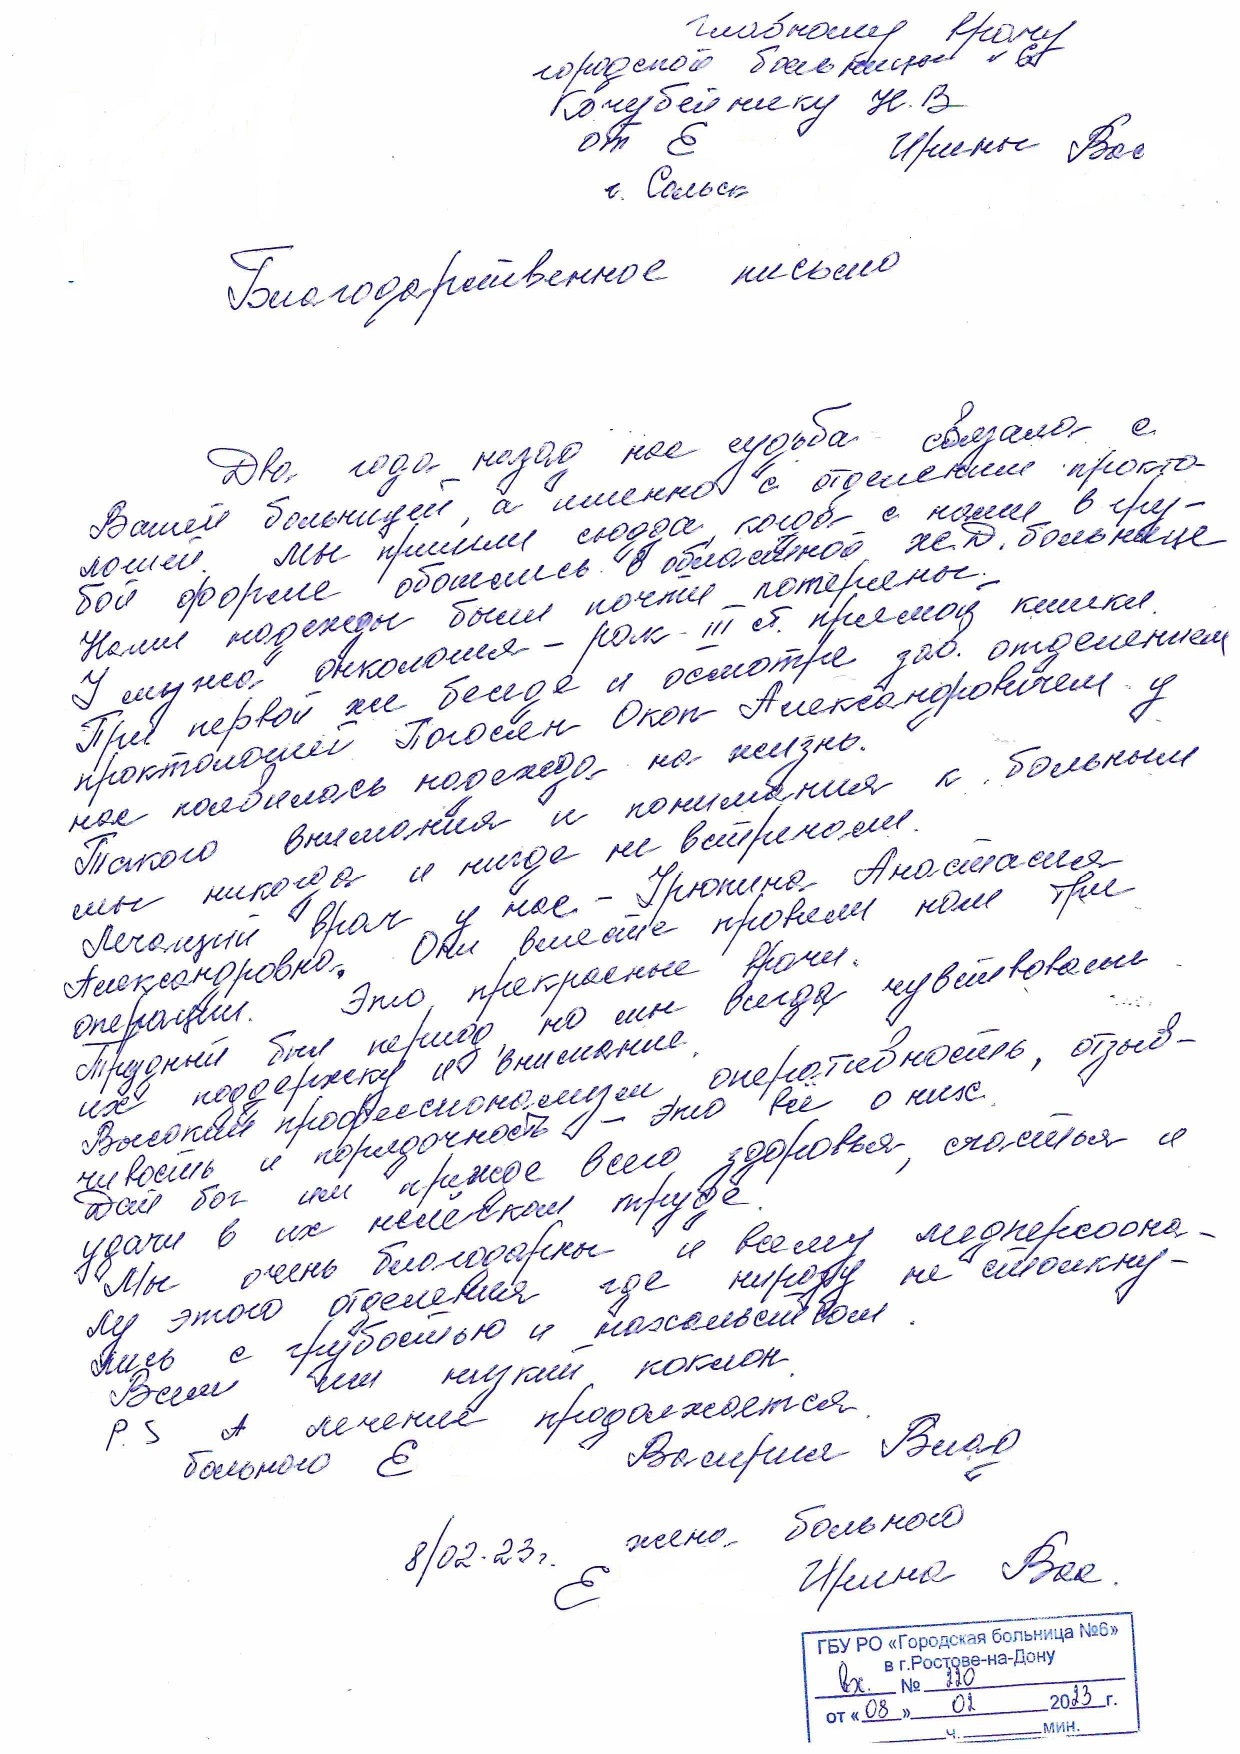 Главному врачу
городской больницы №6
Кочубейнику Н.В
от Е Ирины Вас
г. Сальск
Благодарственное письмо
Два года назад нас судьба связала с
Вашей больницей, а именно с отделением прокто-
логией. Мы пришли сюда, когда с нами в гру-
бой форме обошлись в областной ж.Д. больнице
Нами надежды были почти потеряны.
У мужа онкология - рак III ст. прямой кишки.
При первой же беседе и осмотре зав. отделением
проктологией Погосян Окоп Александровичем у
нас появилась надежда на жизнь.
Такого внимания и понимания к больным
мы никогда и нигде не встречали.
Лечащий врач у нас - Урюпина Анастасия
Александровна. Они вместе провели нам три
операции. Это прекрасные врачи.
Трудный был период, но мы всегда чувствовали
их поддержку и внимание.
Высокий профессионализм оперативность, отзыв-
чивость и порядочность - это всё о них.
Дай бог им прежде всего здоровья, счастья и
удачи в их нелёгком труде.
Мы очень благодарны и всему медперсона-
лу этого отделения где ниразу не столкну-
лись с грубостью и нахальством.
Всем им низкий поклон.
P.S А лечение продолжается.
больного Е Валерия Влад
8/02.23г. жена больного
Е Ирина Вас.
ГБУ РО «Городская больница №6»
в г.Ростове-на-Дону
вх. № 220
от «08» 02 2023г.
ч. мин.